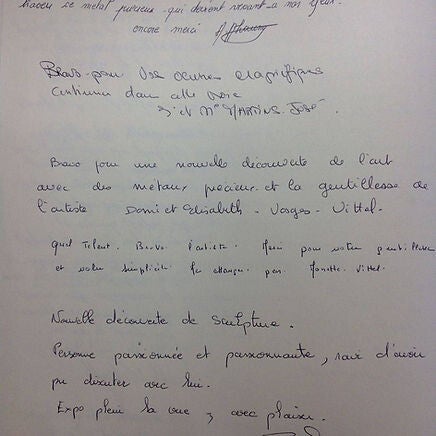 ce métal précieux qui devient vivant a nos yeux.
encore merci
Bravo pour Vos oeuvres magnifiques
Continuer dans cette voie
Mr et Me MARTINS José.
Bravo pour une nouvelle découverte de l'art
avec des métaux précieux et la gentillesse de
l'artiste Domi et Elisabeth - Vosges - Vittel.
Quel Talent. Bravo l'artiste. Merci pour votre gentillesse
et votre simplicité. Ne changez pas. Monette. Vittel.
Nouvelle découverte de Sculpture.
Personne passionnée et passionnante, ravi d'avoir
pu discuter avec lui.
Expo plein la vue, avec plaisir.